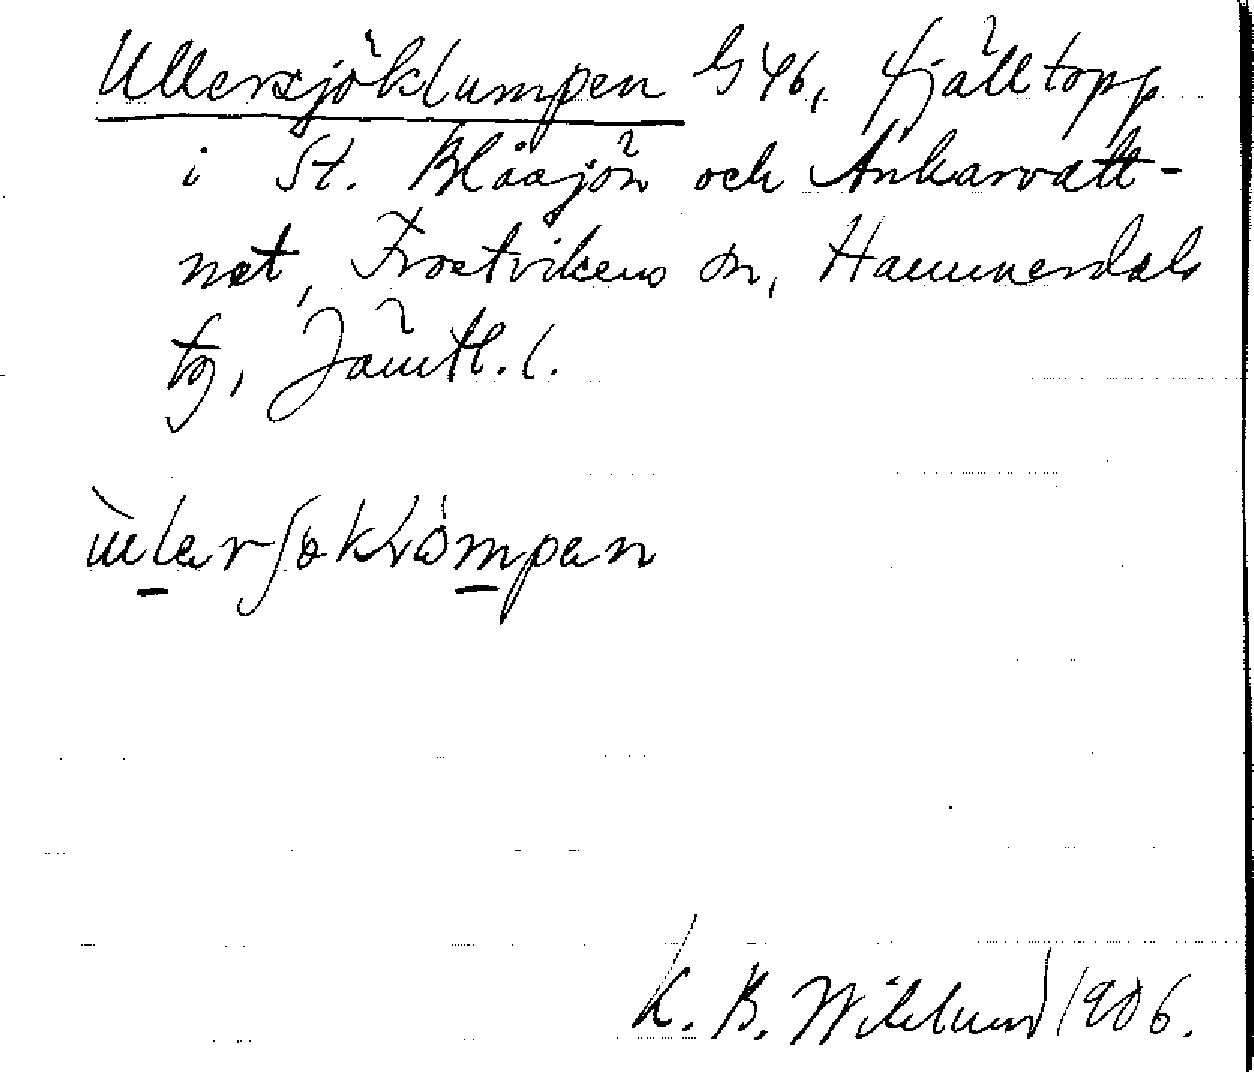 Ullersjöklumpen G 46, fjälltopp
i St. Blåsjön och Ankarvatt-
net, Frostvikens sn, Hammerdals
tg, Jämtl. l.
K. B. Wiklund 1906.